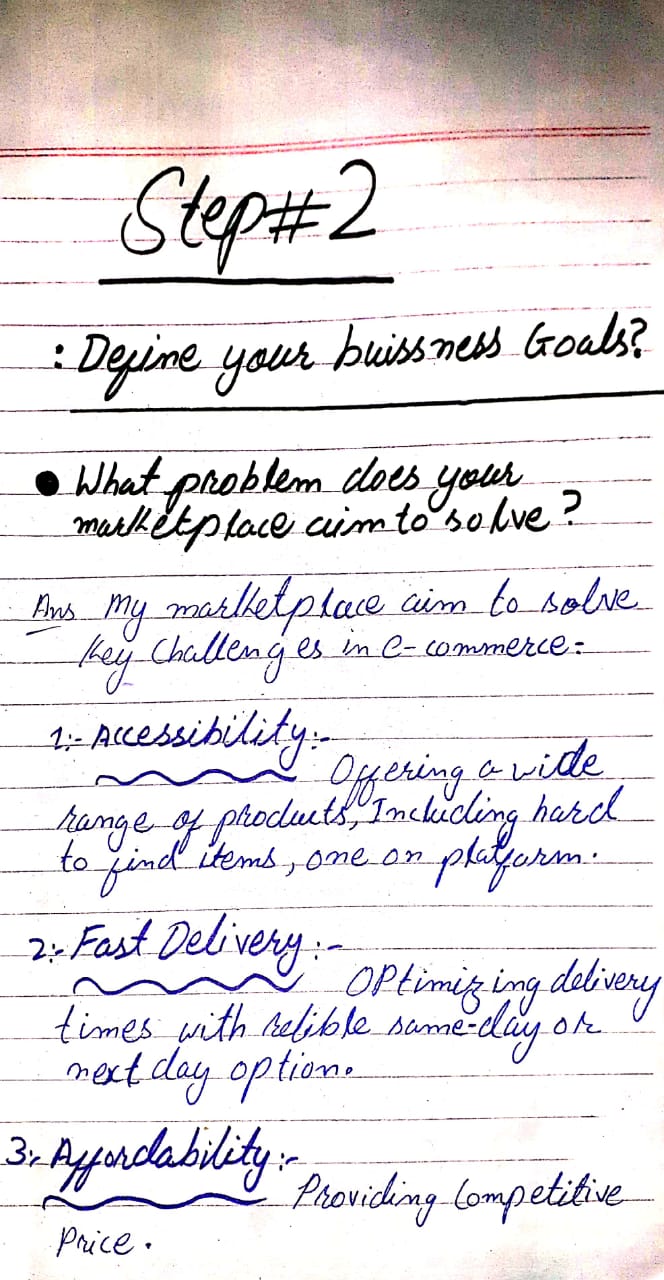 Step#2
: Define your buissness Goals?
• What problem does your
marketplace aim to solve?
Ans My marketplace aim to solve
key Challenges in e-commerce:-
1:- Accessibility:-
Offering a wide
range of products, Including hard
to find items, one on platform.
2:- Fast Delivery:-
Optimizing delivery
times with relible same-day or
next day option.
3:- Affordability:-
Providing Competitive
Price.